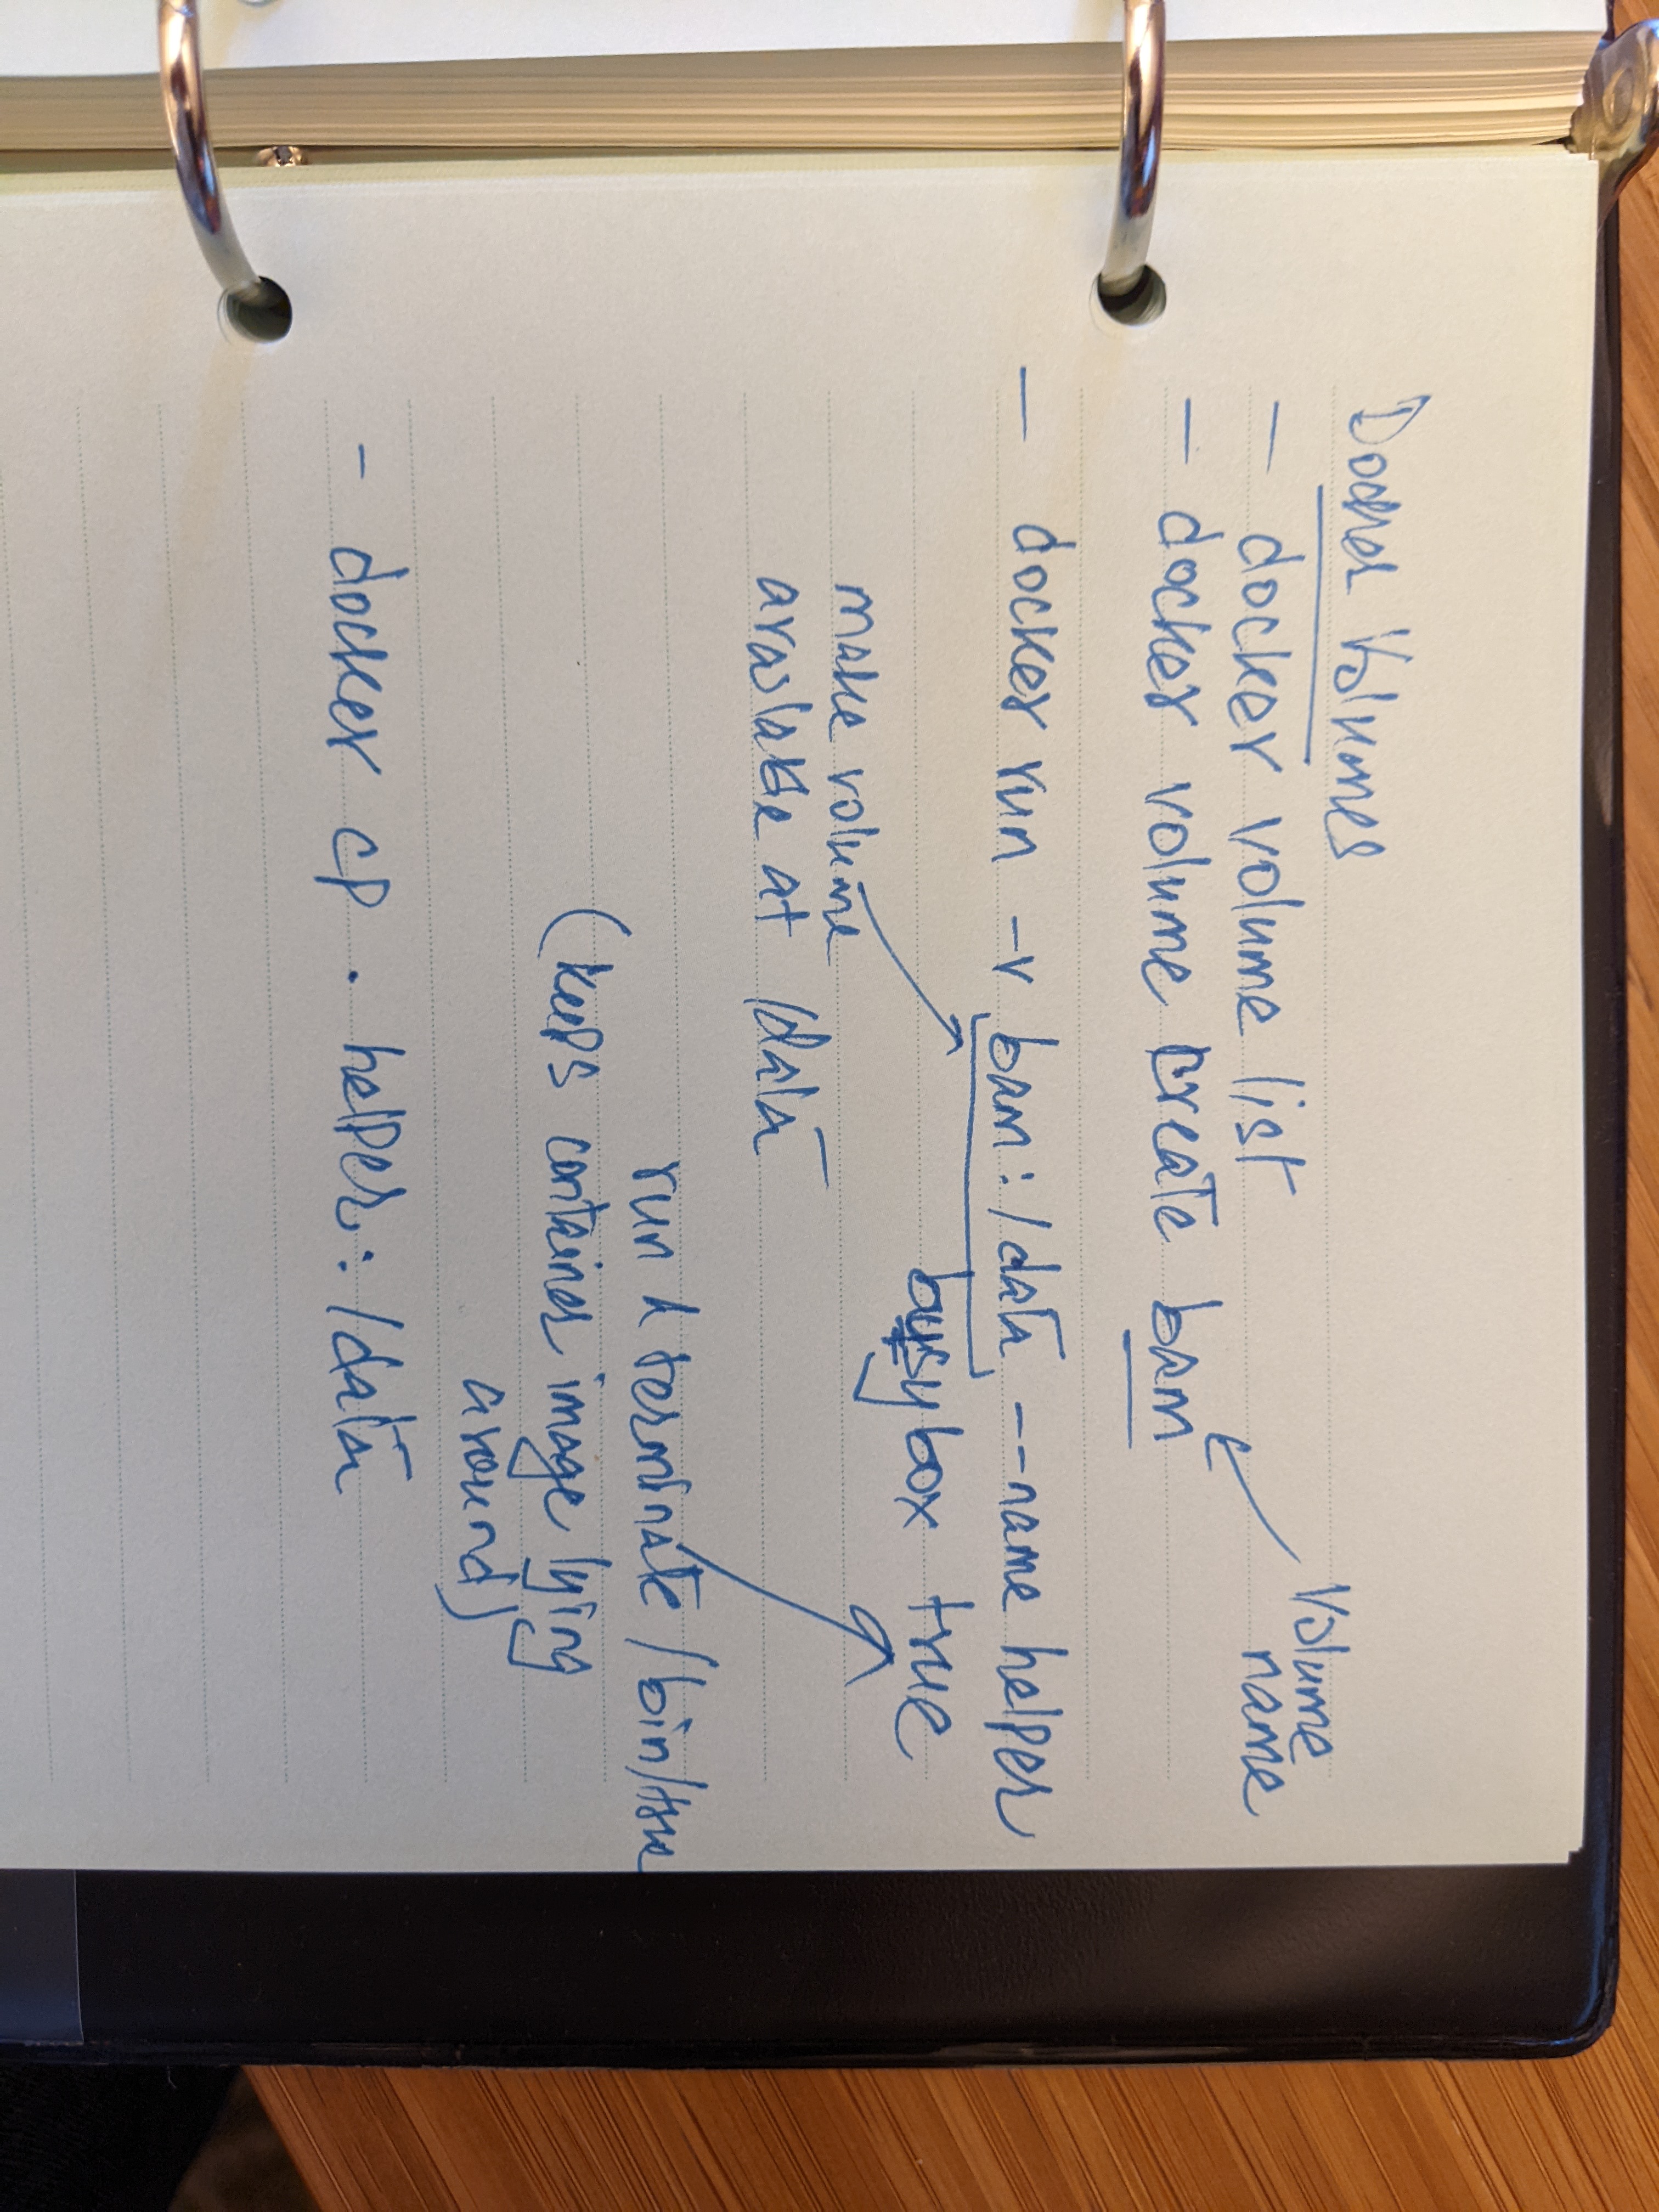 Docker Volumes
— docker volume list
Volume
name
— docker volume create bam
— docker run -v bam:/data --name helper
busybox true
make volume
available at /data
run & terminate /bin/true
(keeps container image lying
around)
- docker cp . helper:/data